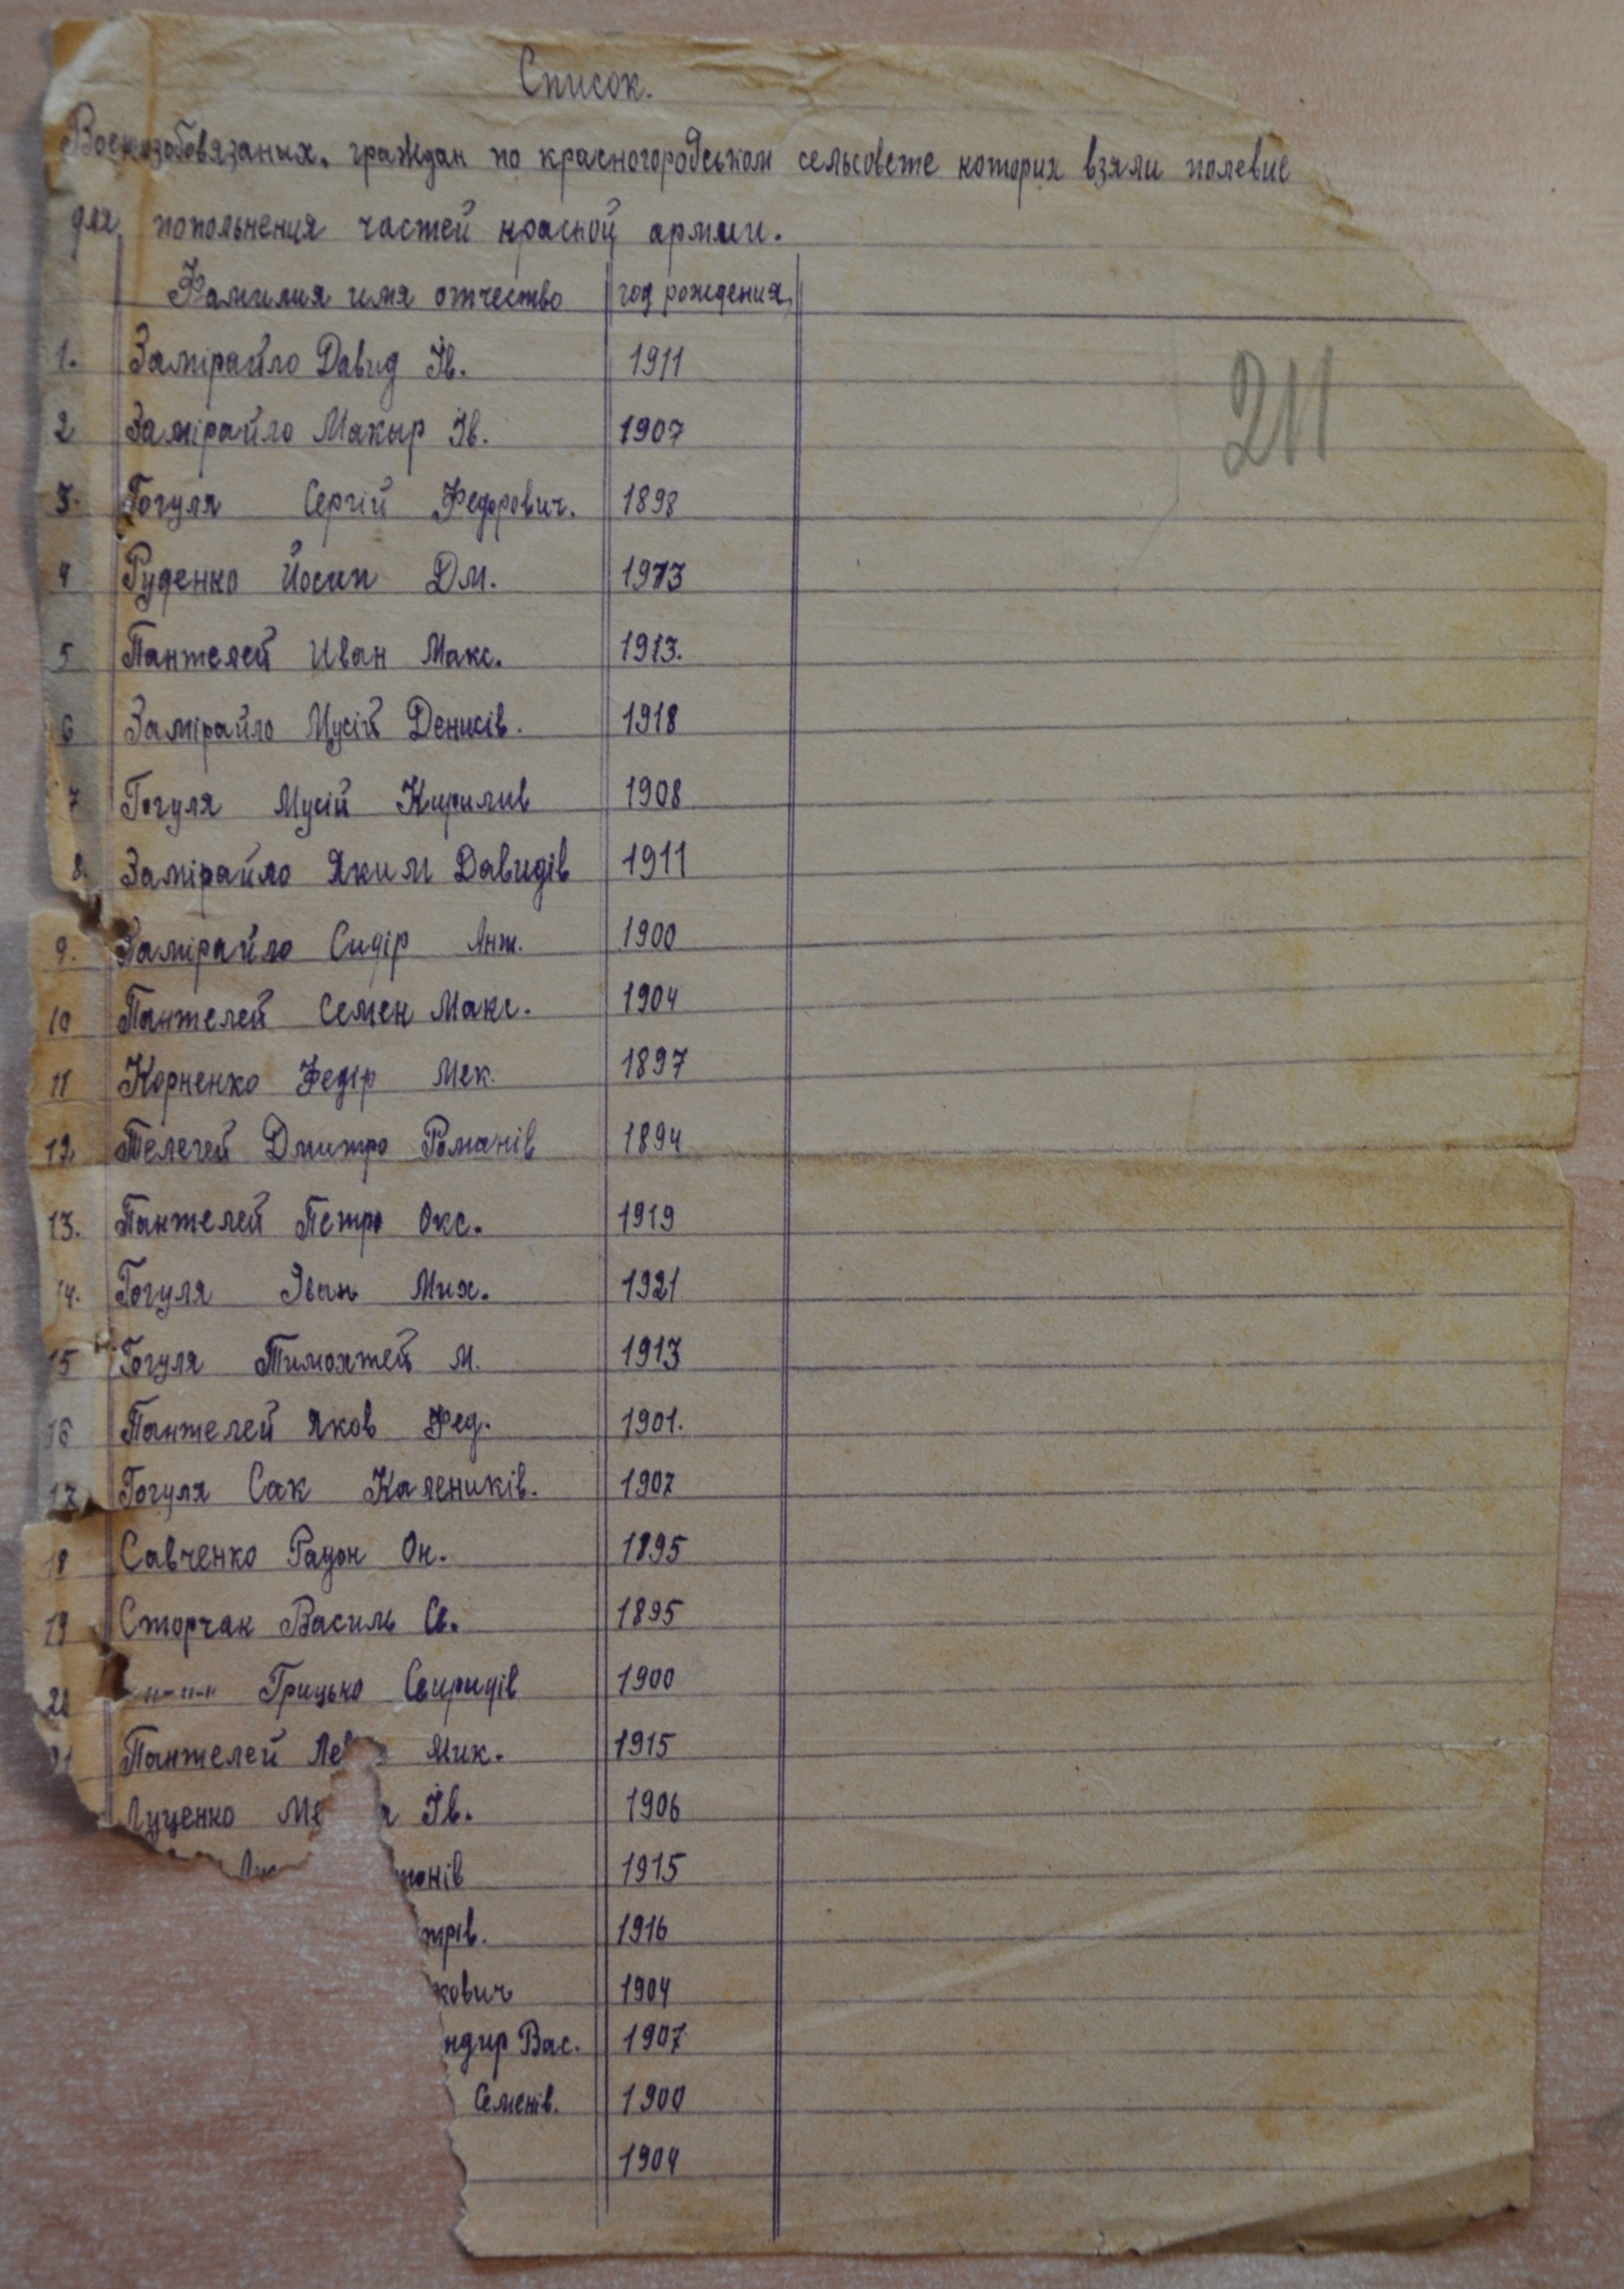 Список.
Военозобовязаных, граждан по красногородськом сельсовете которих взяли полевие
для попольнения частей красной армии.
Фамилия имя отчество год рождения
211
1. Замірайло Давид Ів. 1911
2 Замірайло Макыр Ів. 1907
3. Гогуля Сергій Федорович. 1898
4 Руденко Йосип Дм. 1913
5 Пантелей Иван Макс. 1913.
6 Замірайло Мусій Денисів. 1918
7 Гогуля Мусій Кирилив 1908
8. Замірайло Яким Давидів 1911
9. Замірайло Сидір Ант. 1900
10 Пантелей Семен Макс. 1904
11 Корненко Федір Мек. 1897
12. Телегей Дмитро Романів 1894
13. Пантелей Петро Окс. 1919
14. Гогуля Іван Мих. 1921
15 Гогуля Тимохтей М. 1913
16 Пантелей Яков Фед. 1901.
17 Гогуля Сак Калеників. 1907
18 Савченко Радон Он. 1895
19 Сторчак Василь Св. 1895
20 -"-"-" Грицько Свиридів 1900
21 Пантелей Мик. 1915
Луценко Ів. 1906
онів 1915
трів. 1916
кович 1904
ндир Вас. 1907
Семенів. 1900
1904